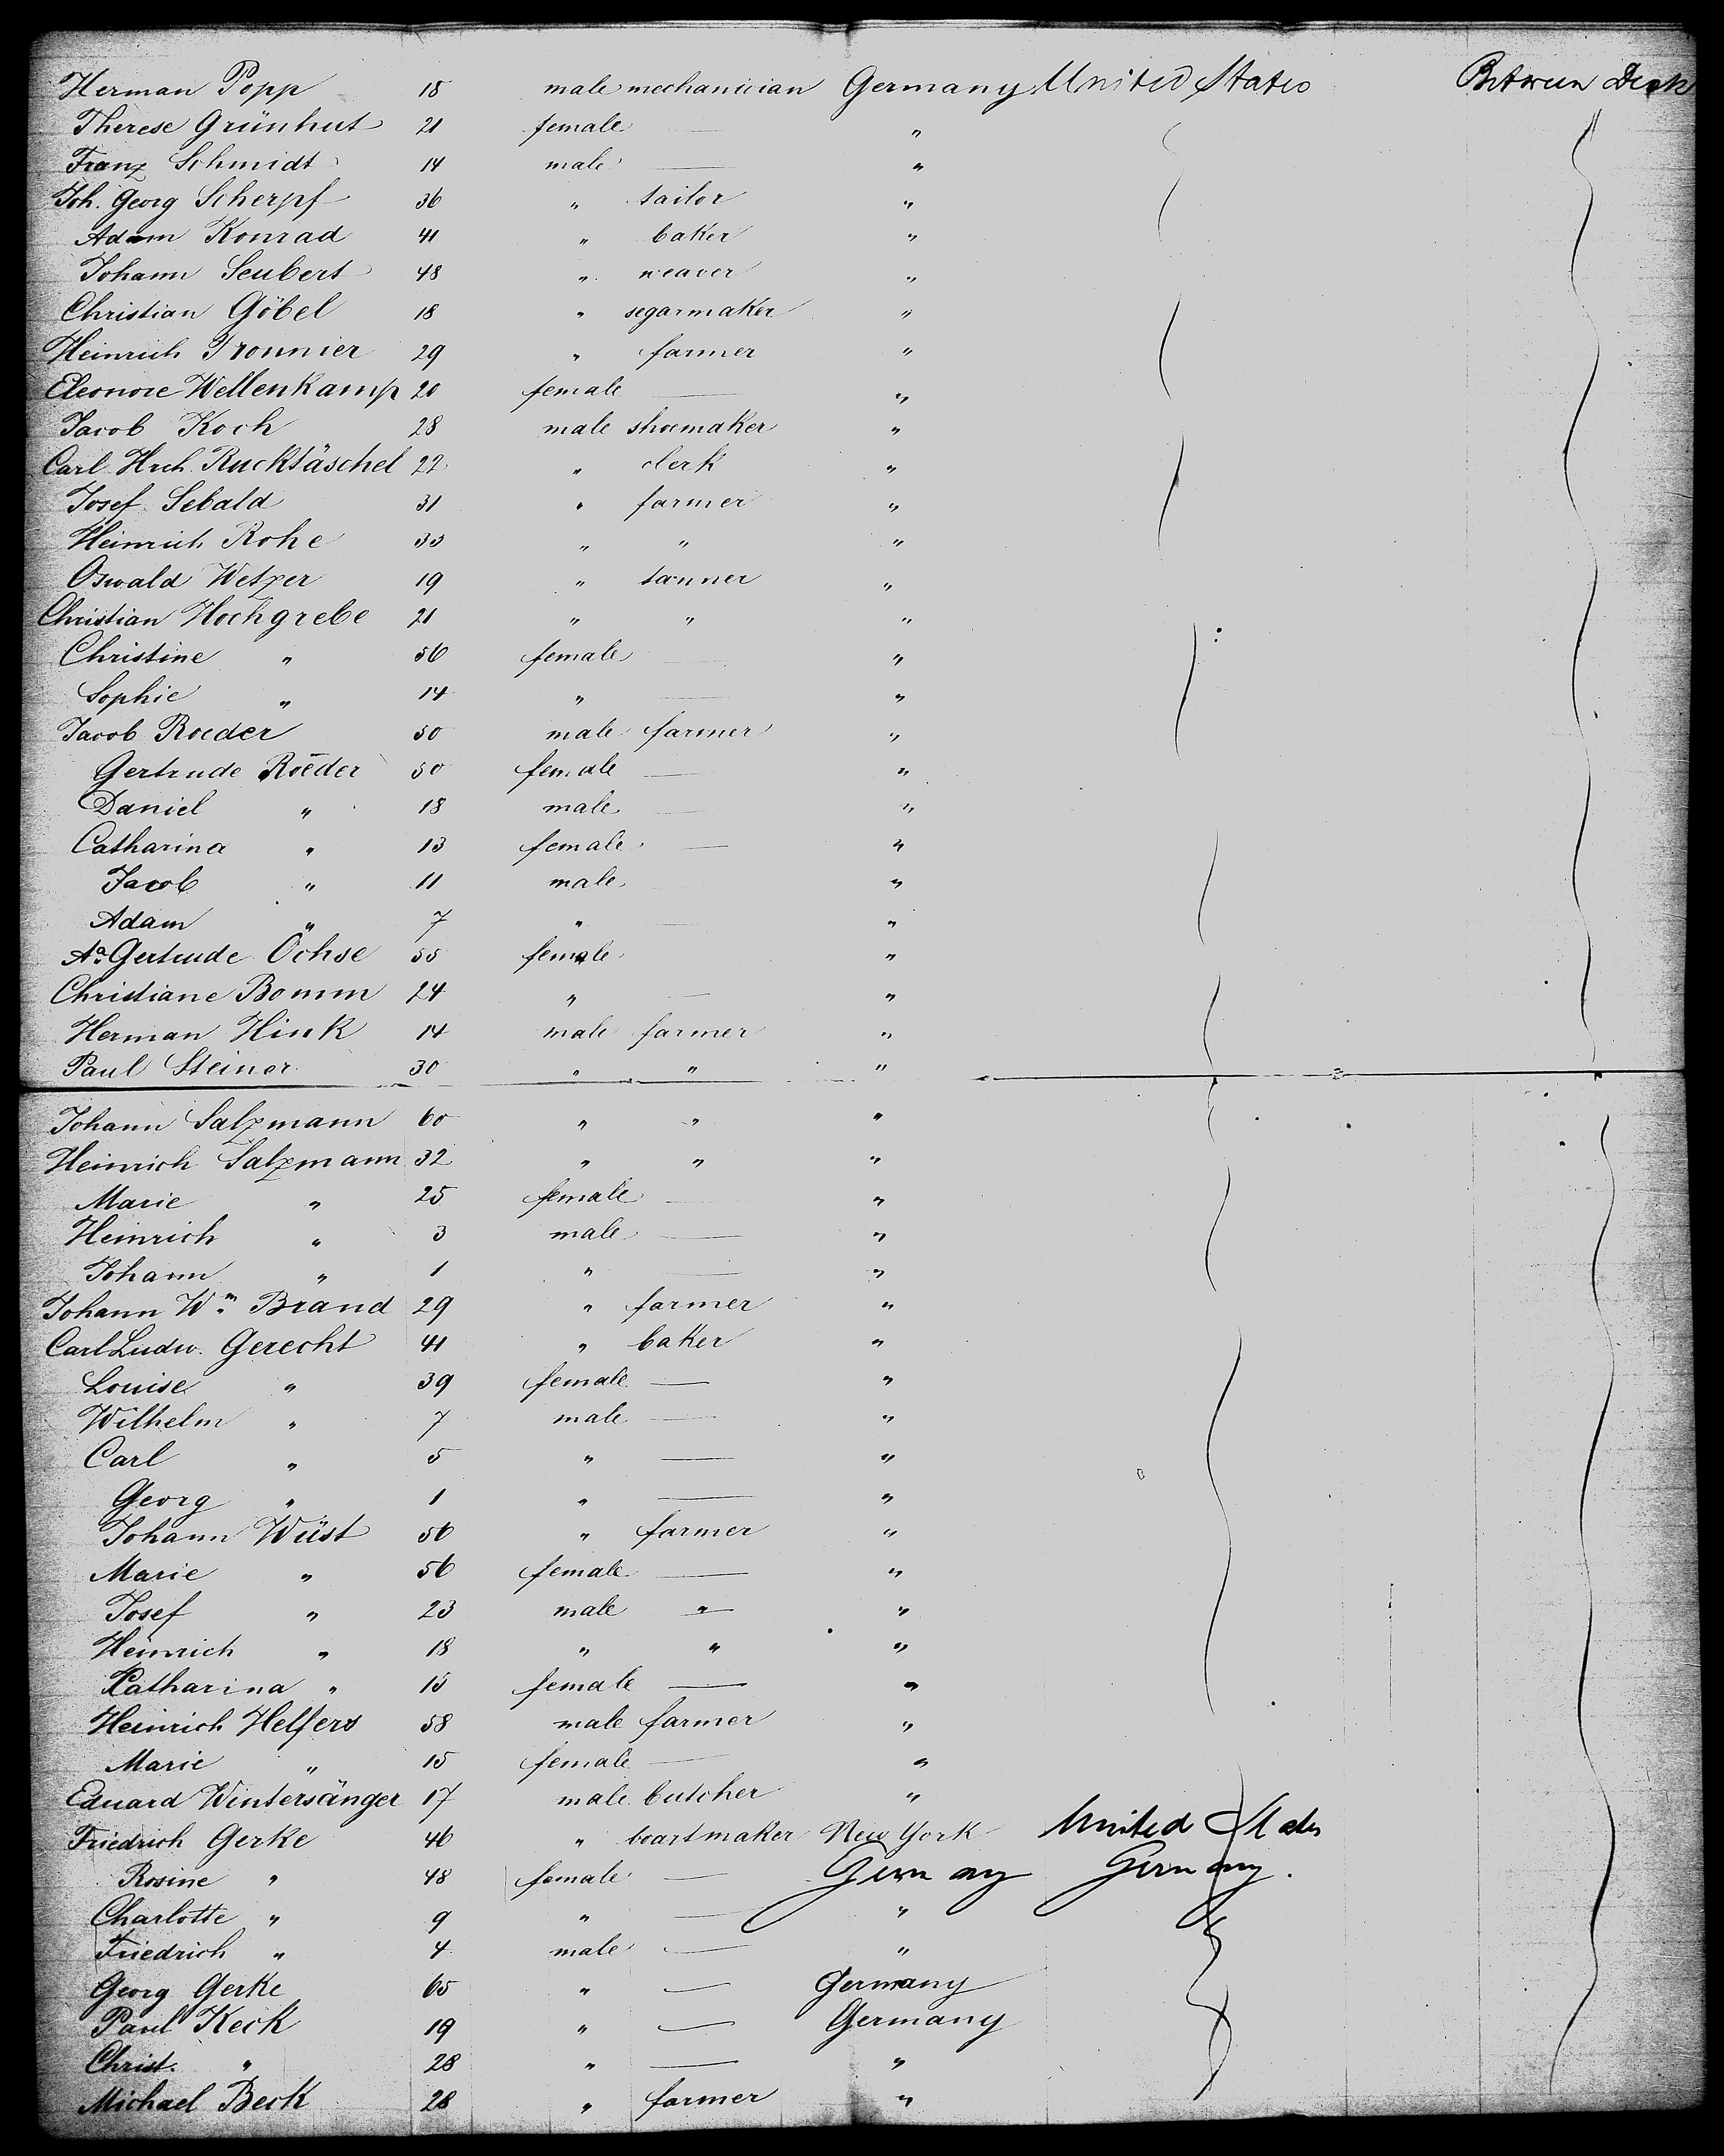 Herman Popp 18 male mechanician Germany United States Between Deck
Therese Grünhut 21 female — "
Franz Schmidt 14 male — "
Joh. Georg Scherpf 36 " tailor "
Adam Konrad 41 " baker "
Johann Seubert 48 " weaver "
Christian Göbel 18 " segarmaker "
Heinrich Tronnier 29 " farmer "
Eleonore Wellenkamp 20 female — "
Jacob Koch 28 male shoemaker "
Carl Hrch. Rucktäschel 22 " clerk "
Josef Sebald 31 " farmer "
Heinrich Rohe 33 " " "
Oswald Wetzer 19 " tanner "
Christian Hochgrebe 21 " " "
Christine " 56 female — "
Sophie " 14 " — "
Jacob Roeder 50 male farmer "
Gertrude Roeder 50 female — "
Daniel " 18 male — "
Catharina " 13 female — "
Jacob " 11 male "
Adam " 7 " — "
Aa. Gertrude Öchse 55 female "
Christiane Bomm 24 " — "
Herman Hink 14 male farmer "
Paul Steiner 30 " " "
Johann Salzmann 60 " " "
Heinrich Salzmann 32 " " "
Marie " 25 female — "
Heinrich " 3 male — "
Johann " 1 " — "
Johann Wm. Brand 29 " farmer "
Carl Ludw. Gerecht 41 " baker "
Louise " 39 female — "
Wilhelm " 7 male — "
Carl " 5 " — "
Georg " 1 " — "
Johann Wüst 56 " farmer "
Marie " 56 female — "
Josef " 23 male " "
Heinrich " 18 " " "
Katharina " 15 female — "
Heinrich Helfers 58 male farmer "
Marie " 15 female — "
Eduard Wintersänger 17 male butcher "
Friedrich Gerke 46 " boartmaker New York United States
Rosine " 48 female — Germany Germany.
Charlotte " 9 " — "
Friedrich " 4 male — "
Georg Gerke 65 " — Germany
Paul Keck 19 " — Germany
Christ. " 28 " — "
Michael Beck 28 " farmer "